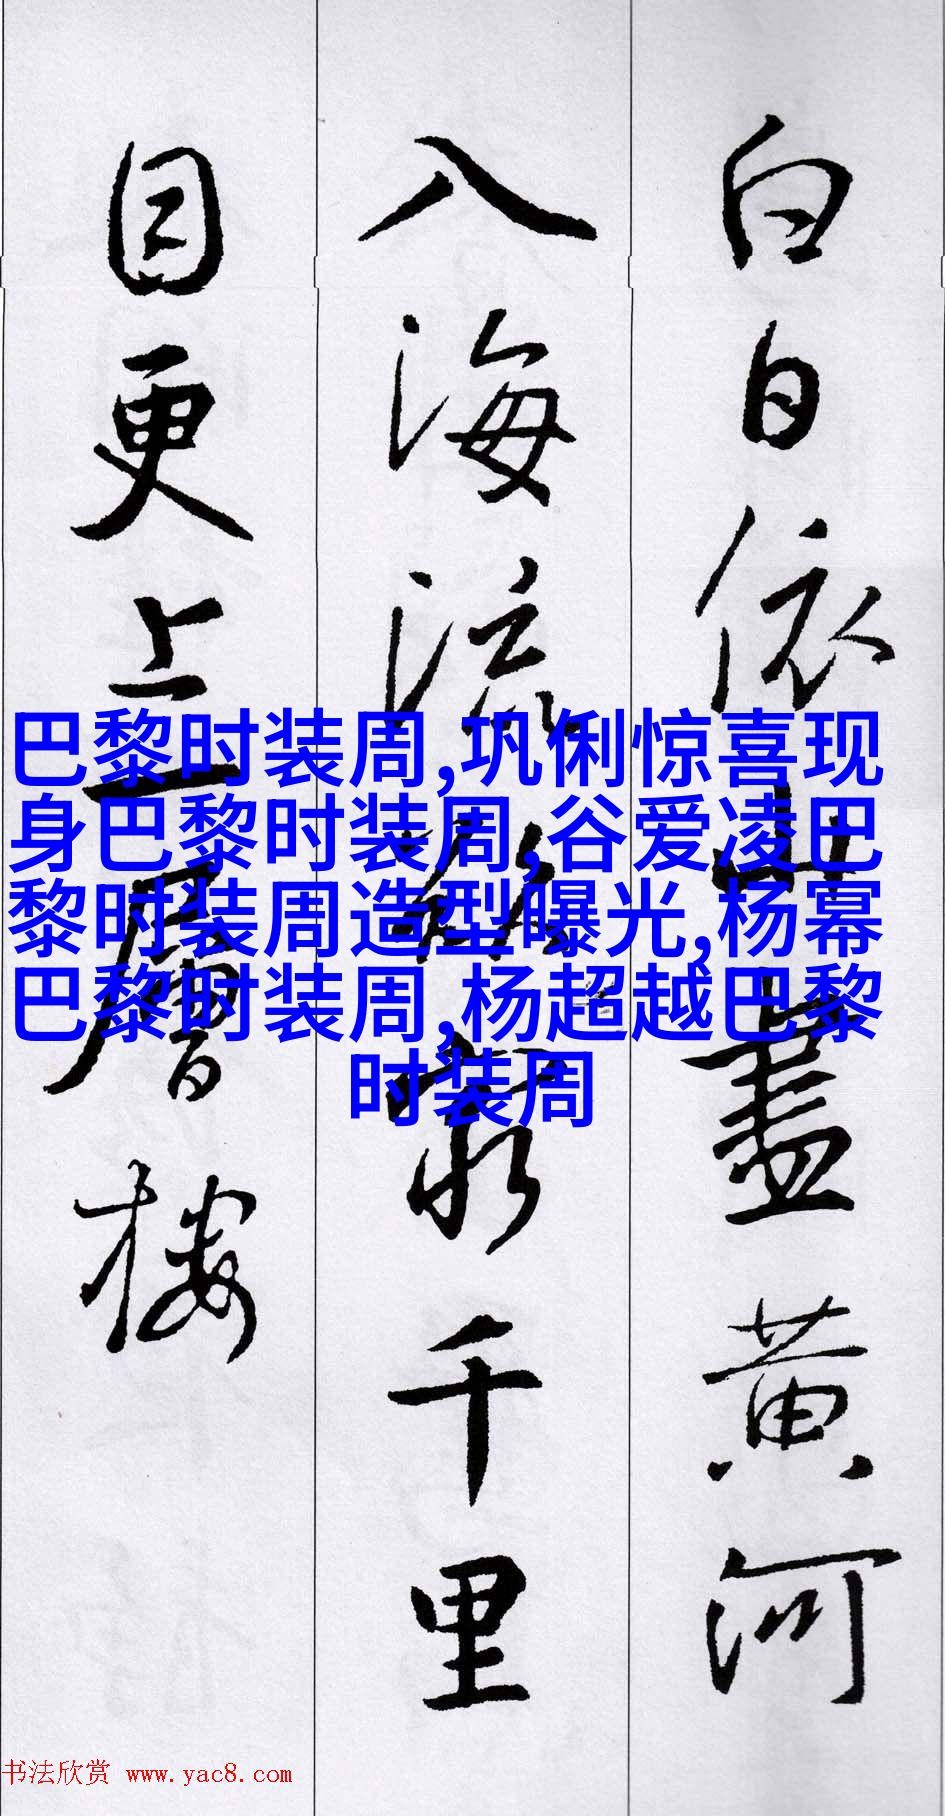 白日依山盡黄河
入海流欲窮千里
目更上一層樓
巴黎时装周,巩俐惊喜现
身巴黎时装周,谷爱凌巴
黎时装周造型曝光,杨幂
巴黎时装周,杨超越巴黎
时装周
书法欣赏 www.yac8.com